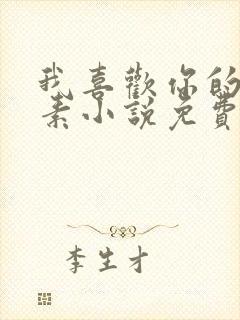 我喜歡你的
素小說免費
李生才